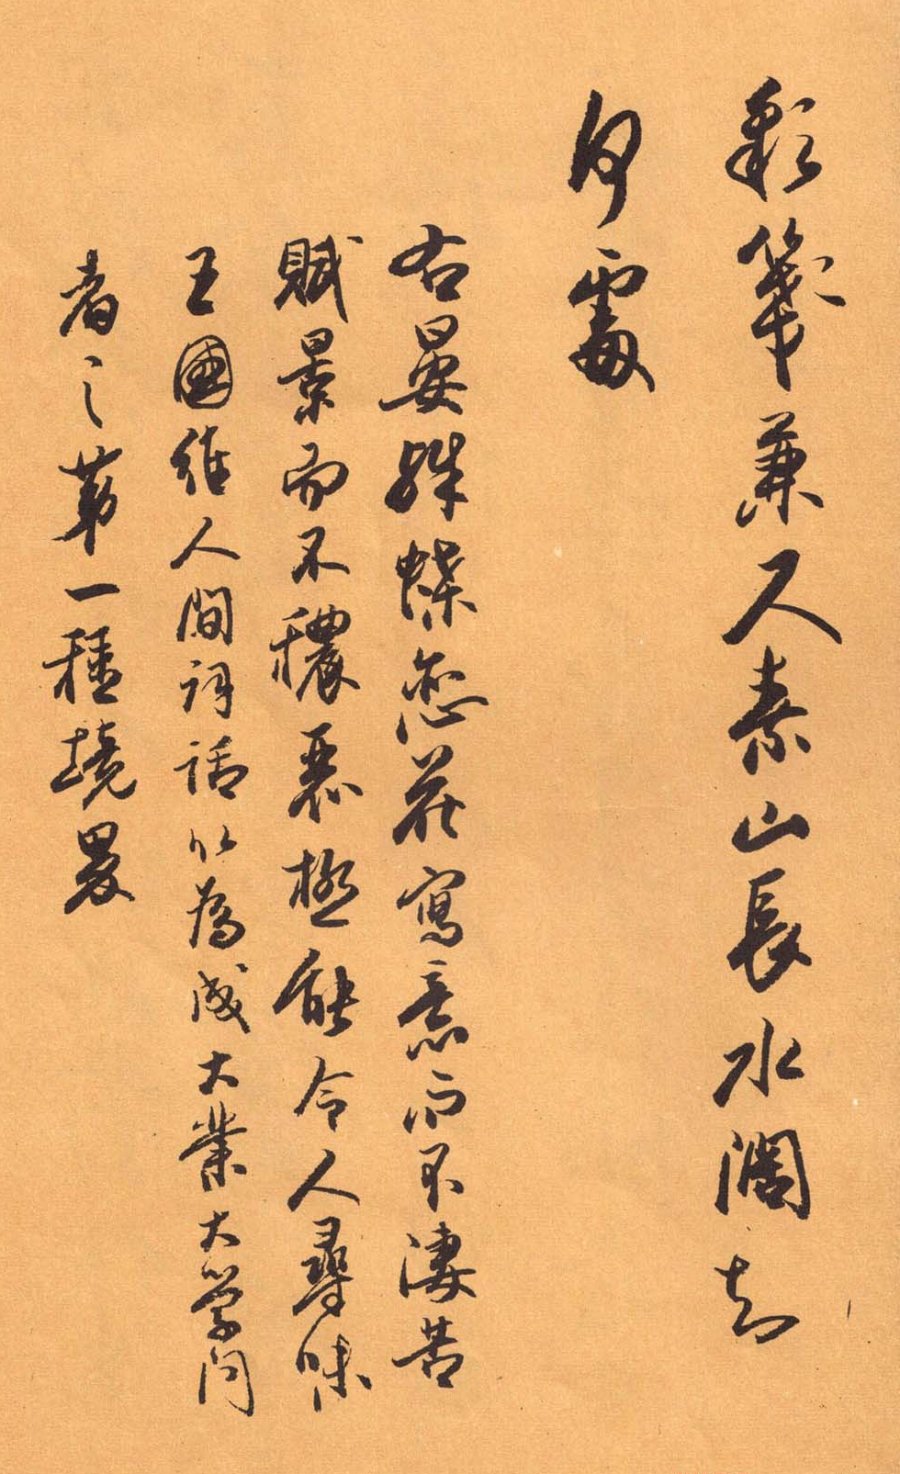 彩箋兼尺素山長水闊知
何處
右晏殊蝶戀花寫意而不淒苦
賦景而不穠極能令人尋味
王國維人間詞話以為成大業大學問
者之第一種境界